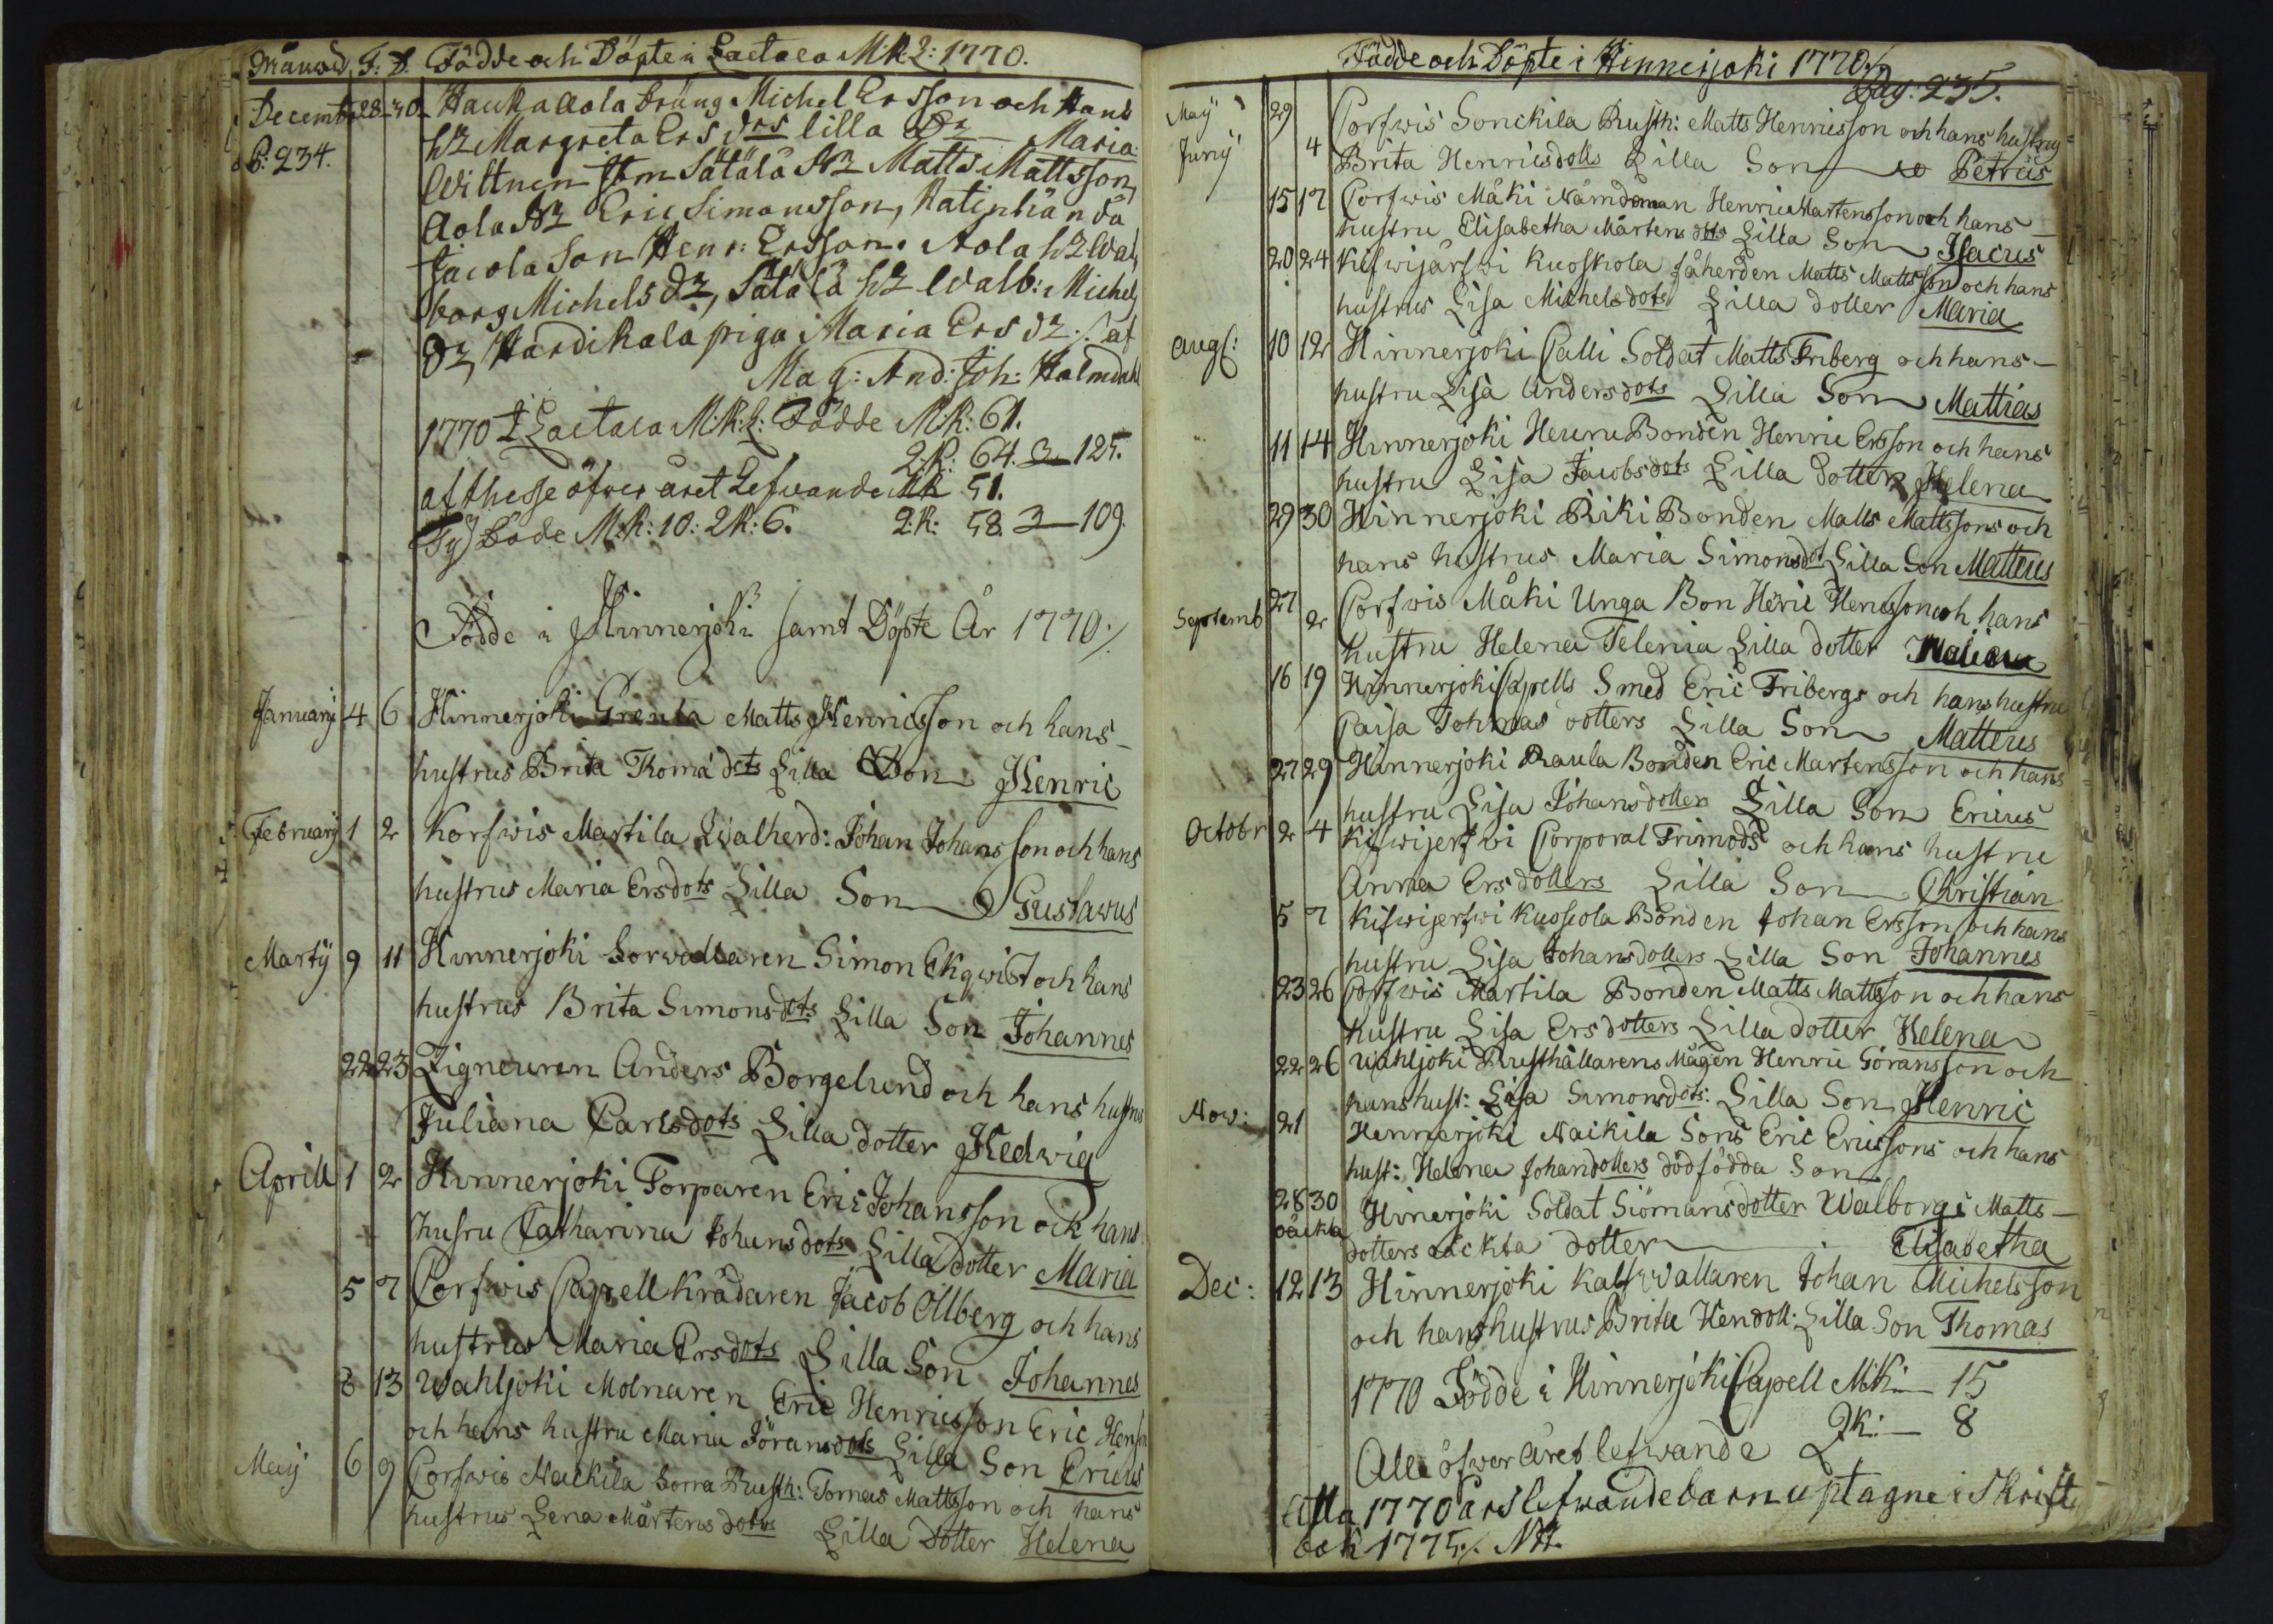 Månad F: D. Födde och Döpte i Laetala M:K:L: 1770.
Decemb: 28 30 Haukallola dräng Michel Ersson och Hans
P: 234. h2 Margreta Ersdrs lilla D2 Maria
Wittnen Hm Sätälä B2 Matts Mattsson,
Aola B2 Eric Simonsson, Katinhändä
Jacola Son Henr: Ersson. Aola h2 Wal,
borg Michels d2, Sätälä h2 Walb: Michels
d2, Hardikala piga Maria Ers d2 ./. af
Mag: And: Joh: Halmdahl
1770 I Laetala M:K:L: Födde M:K: 61.
Q:K: 64. 125.
af thesse öfver året Lefvande MK 51.
Ty Döde M:K: 10: QK: 6. Q:K: 58. 109.
Födde i Hinnerjoki samt Döpte År 1770 ./.
January 4 6 Hinnerjoki Greula Matts Henricsson och hans
hustrus Brita Thoma dots Lilla Son Henric
February 1 2 Korfwis Martila Walherd: Johan Johansson och hans
hustrus Maria Ersdots Lilla Son Gustawus
Marty 9 11 Hinnerjoki Sorwallaren Simon Ekqwist och hans
hustrus Brita Simonsdots Lilla Son Johannes
22 23 Zigneuren Anders Borgelund och hans hustrus
Juliana Carlsdots Lilla dotter Hedwig
Aprill 1 2 Hinnerjoki Torparen Eric Johansson och hans
husru Catharina Johansdots Lilla dotter Maria
5 7 Corfwis Capell Krädaren Jacob Ollberg och hans
hustrus Maria Ersdots Lilla Son Johannes
8 13 Wahljoki Molnaren Eric Henricsson Eric Hens
och hans hustru Maria Jöransdots Lilla Son Ericus
May 6 9 Corfwis Nackila Sorra Rusth: Tomas Mattsson och hans
hustrus Lena Mårtens dotus Lilla Dotter Helena
Födde och Döpte i Hinnerjoki 1770 ./.
Pag: 235.
May 29 Corfwis Sonckila Rusth: Matts Henricsson och hans hustrug
Juny 4 Brita Henricsdotts Lilla Son Petrus
15 17 Corfwis Mäki Nämdeman Henric Martensson och hans
hustru Elisabetha Mårtens dots Lilla Son Isacus
20 24 Kifwijärfwi Kuoskola fåherden Matts Mattsson och hans
hustrus Lisa Michelsdots Lilla dotter Maria
Aug: 10 12 Hinnerjoki Palli Soldat Matts Friberg och hans
hustru Lisa Andersdots Lilla Son Mattias
11 14 Hinnerjoki Heuru Bonden Henric Ersson och hans
hustru Lisa Jacobsdots Lilla dotter Helena
29 30 Hinnerjoki Piki Bonden Matts Mattssons och
hans hustrus Maria Simonsdot Lilla Son Matteus
Septemb 27 2 Corfwis Mäki Unga Bon Heric Hencsson och hans
hustru Helena Telenia Lilla dotter Maria
16 19 Hinnerjoki Capells Smed Eric Fribergs och hans hustru
Caisa Tohmas dotters Lilla Son Matteus
27 29 Hinnerjoki Raula Bonden Eric Martensson och hans
hustru Lisa Johansdotter Lilla Son Ericus
Octobr 2 4 Kifwijerfwi Corporal Frimods och hans hustru
Anna Ersdotters Lilla Son Christian
5 7 Kifwijerfwi Kuoscola Bonden Johan Ersson och hans
hustru Lisa Johansdotters Lilla Son Johannes
23 26 Corfwis Martila Bonden Matts Mattsson och hans
hustru Lisa Ersdotters Lilla dotter Helena
22 26 Wahljoki Rusthållarens Mågen Henric Göransson och
hans hust: Lisa Simonsdots: Lilla Son Henric
Nov: 21 Hinnerjoki Naikila Sons Eric Ericssons och hans
hust: Helena Johandotters dödfödda Son
28 30 Hinerjoki Soldat Siömans dotter Walborgs Matts
oäckta dotters oäckta dotter Elisabetha
Dec: 12 13 Hinnerjoki Kalfwallaren Johan Michelsson
och hans hustrus Brita Hendott: Lilla Son Thomas
1770 Födde i Hinnerjoki Capell M:K: 15
QK: 8
Alle öfwer året lefwande
Alla 1770 års lefwande barn uptagne i Skrift
bok 1775 ./. NB.